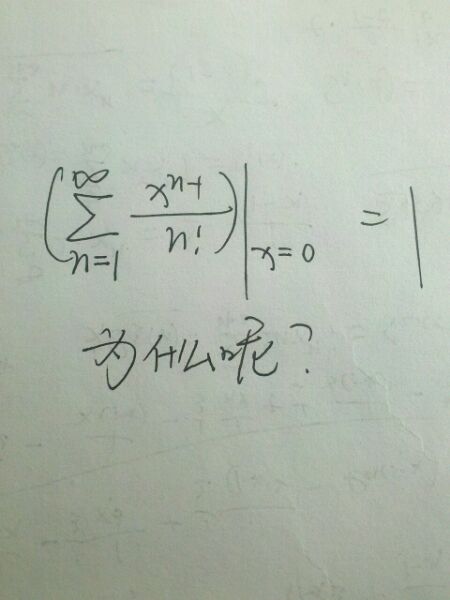 (∑_{n=1}^{∞} x^{n-1}/n!)|_{x=0} = 1
为什么呢?